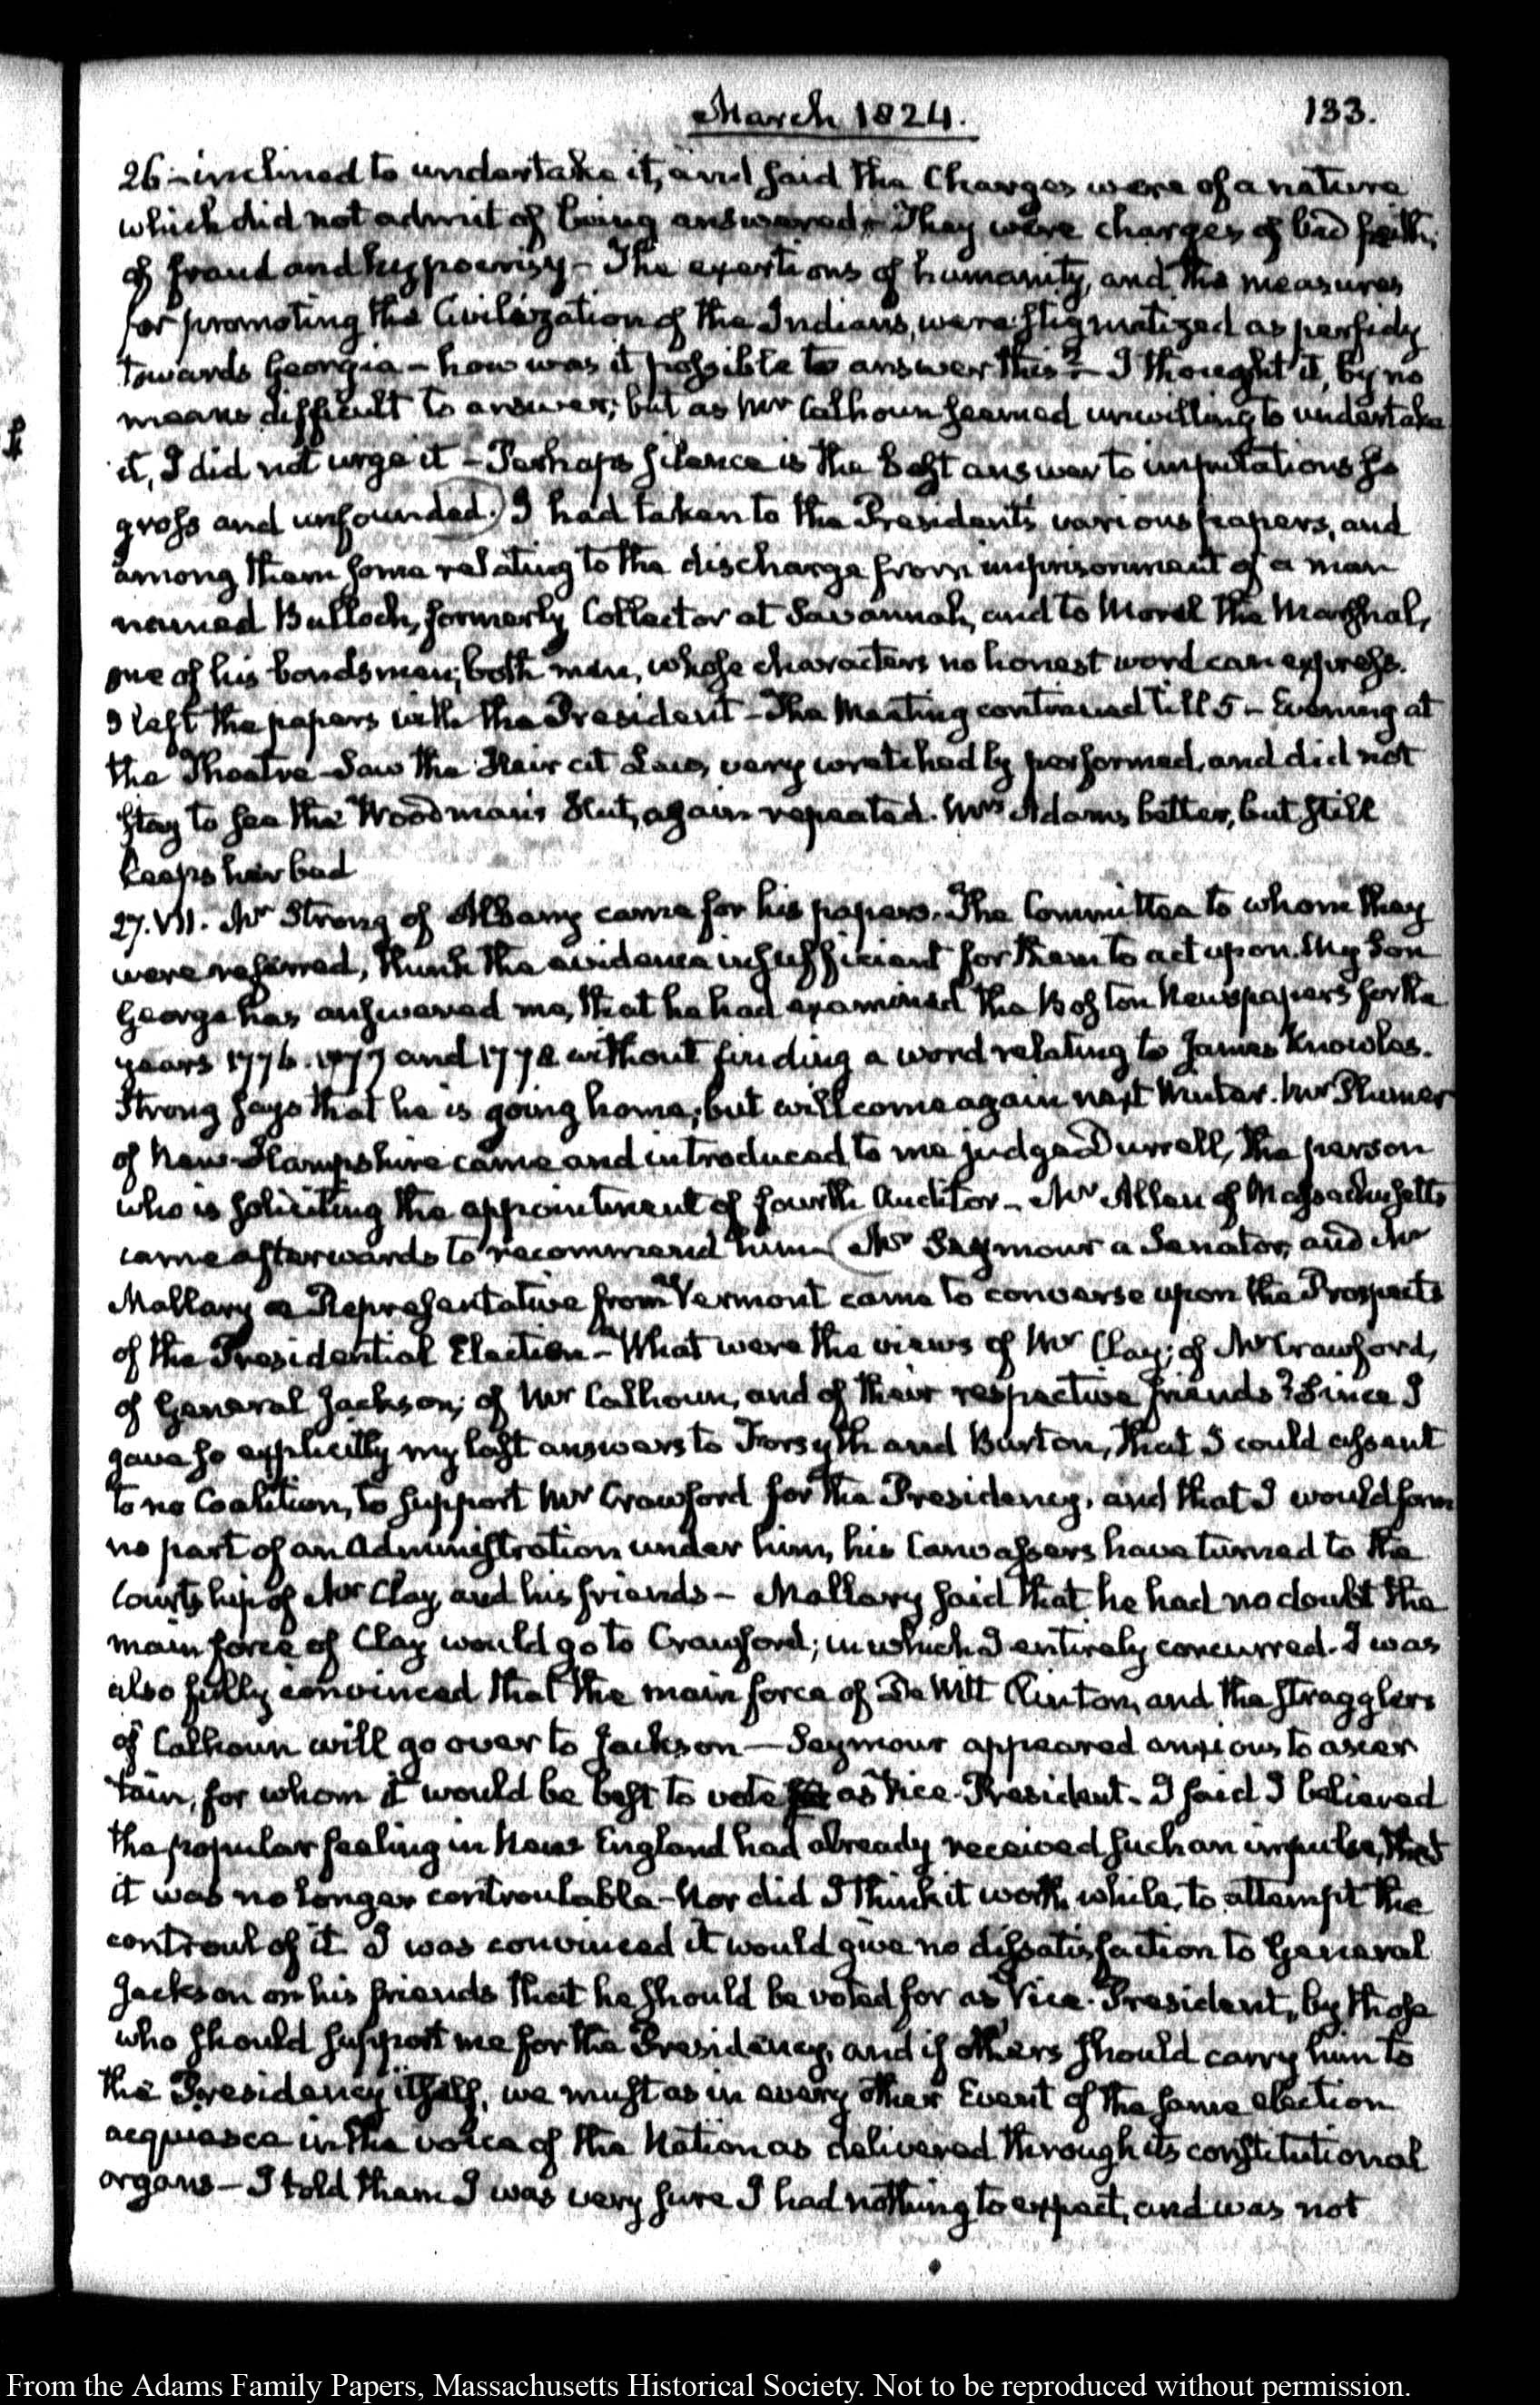 March 1824.
133.
26 - inclined to undertake it, and said the Charges were of a nature
which did not admit of being answered - They were charges of bad faith,
of fraud and hypocrisy - The exertions of humanity, and the measures
for promoting the Civilization of the Indians, were stigmatized as perfidy
towards Georgia - how was it possible to answer this? - I thought it, by no
means difficult to answer; but as Mr Calhoun seemed unwilling to undertake
it, I did not urge it - Perhaps silence is the best answer to imputations so
gross and unfounded. I had taken to the President's various papers, and
among them some relating to the discharge from imprisonment of a man
named Bulloch, formerly Collector at Savannah, and to Morel the Marshal,
one of his bondsmen; both men, whose characters no honest word can express.
I left the papers with the President - The Meeting continued till 5 - Evening at
the Theatre - Saw the Heir at Law, very wretchedly performed, and did not
stay to see the Woodman's Hut, again repeated. Mrs Adams better, but still
keeps her bed
27. VII. Mr Strong of Albany came for his papers. The Committee to whom they
were referred, think the evidence insufficient for them to act upon. My Son
George has answered me, that he had examined the Boston Newspapers for the
years 1776. 1777 and 1778 without finding a word relating to James Knowles.
Strong says that he is going home; but will come again next Winter. Mr Plumer
of New-Hampshire came and introduced to me judge Durrell, the person
who is soliciting the appointment of fourth Auditor - Mr Allen of Massachusetts
came afterwards to recommend him - Mr Seymour a Senator, and Mr
Mallary a Representative from Vermont came to converse upon the Prospects
of the Presidential Election - What were the views of Mr Clay; of Mr Crawford,
of General Jackson; of Mr Calhoun, and of their respective friends? Since I
gave so explicitly my last answers to Forsyth and Barton, that I could assent
to no Coalition, to support Mr Crawford for the Presidency, and that I would form
no part of an Administration under him, his Canvassers have turned to the
Courtship of Mr Clay, and his friends - Mallary said that he had no doubt the
main force of Clay would go to Crawford; in which I entirely concurred. I was
also fully convinced that the main force of De Witt Clinton, and the stragglers
of Calhoun will go over to Jackson - Seymour appeared anxious to ascer
tain, for whom it would be best to vote as Vice-President - I said I believed
the popular feeling in New England had already received such an impulse, that
it was no longer controulable - Nor did I think it worth while, to attempt the
controul of it. I was convinced it would give no dissatisfaction to General
Jackson or his friends that he should be voted for as Vice-President, by those
who should support me for the Presidency, and if others should carry him to
the Presidency itself, we must as in every other Event of the same election
acquiesce in the voice of the Nation as delivered through its constitutional
organs - I told them I was very sure I had nothing to expect, and was not
From the Adams Family Papers, Massachusetts Historical Society. Not to be reproduced without permission.